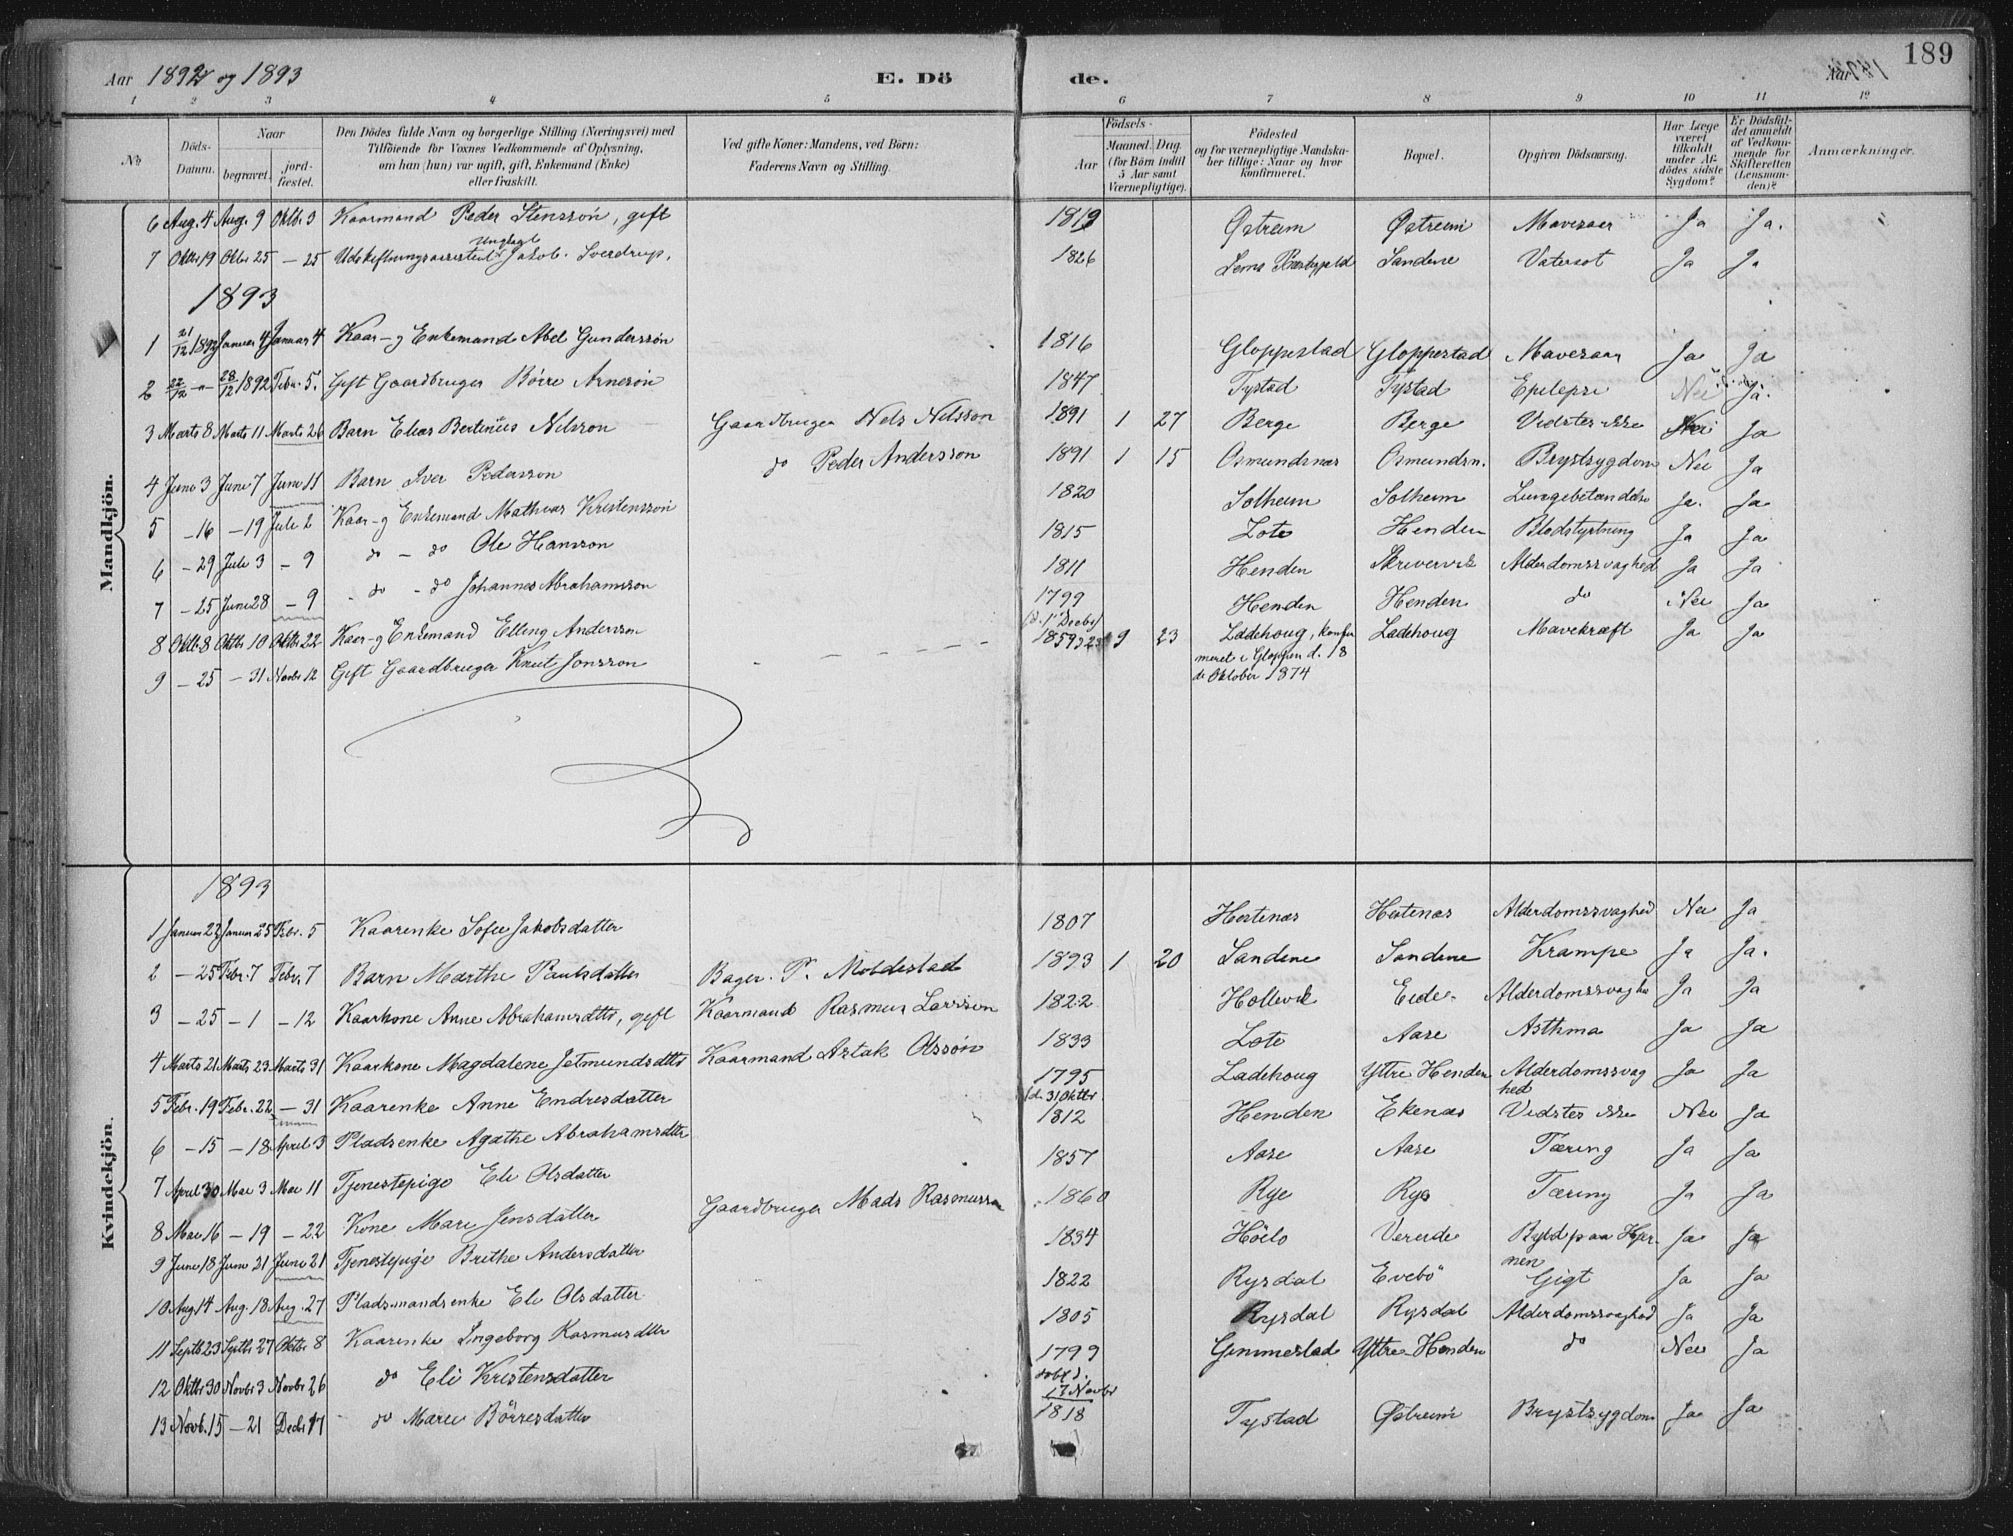 189
Aar 1892 og 1893 E. Dö de. Aar
1 2 3 4 5 6 7 8 9 10 11 12
No
Döds-Datum.
Naar
begravet.
jordfæstet.
Den Dödes fulde Navn og borgerlige Stilling (Næringsvei) med
Tilföiende for Voxnes Vedkommende af Oplysning,
om han (hun) var ugift, gift, Enkemand (Enke)
eller fraskilt.
Ved gifte Koner: Mandens, ved Börn:
Faderens Navn og Stilling.
Födsels-
Aar
Maaned. Dag.
(for Börn indtil
5 Aar samt
Værnepligtige).
Födested
og for værnepligtige Mandskaber tillige: Naar og hvor
konfirmeret.
Bopæl.
Opgiven Dödsaarsag.
Har Læge
været
tilkaldt
under Afdödes sidste
Sygdom?
Er Dödsfaldet anmeldt
af Vedkommende for
Skifteretten
(Lensmanden)?
Anmærkninger.
Mandkjön.
6 Aug. 4 Aug. 9 Oktb. 3 Kaarmand Peder Stensson, gift 1819 Østreim Østreim Mavesaar Ja Ja.
7 Oktbr 19 Oktbr 25 — 25 Udskiftningsassistent Ungkarl Jakob Sverdrup, 1826 Lems Præstegjeld Sandene Vatersot Ja Ja
1893
1 21/12 1892 Januar 4 Januar 4 Kaar- og Enkemand Abel Gundersson 1816 Gloppestad Gloppestad Mavesaar Ja Ja
2 22/12 — 28/12 1892 Febr. 5. Gift Gaardbruger Börre Arneson 1847 Tystad Tystad Epilepsi Nei Ja.
3 Marts 8 Marts 11 Marts 26 Barn Elias Bertinus Nilsson Gaardbruger Nels Nilsson 1891 1 27 Berge Berge Vidstes ikke Nei Ja
4 Juni 3 Juni 7 Juni 11 Barn Iver Pedersson do Peder Andersson 1891 1 15 Osmundsnæs Osmundsn. Brystsygdom Nei Ja
5 — 16 — 19 Juli 2 Kaar- og Enkemand Mathias Kristensson 1820 Solheim Solheim Lungebetændelse Ja. Ja
6 — 29 Juli 3 — 9 do — do Ole Hansson 1815 Lote Henden Blodstyrtning Ja Ja
7 — 25 Juni 28 — 9 do — do Johannes Abrahamsson 1811 Henden Skrivervik Alderdomssvaghed Ja Ja
8 Oktb. 8 Oktbr 10 Oktbr 22 Kaar- og Enkemand Elling Andersson 1799 (d. 1 Decbr) Henden Henden do Nei Ja
9 — 25 — 31 Novbr 12 Gift Gaardbruger Knut Jonsson 1859 9 23 Ladehoug, konfirmeret i Gloppen d. 18de Oktober 1874 Ladehoug Mavekræft Ja Ja
Kvindekjön.
1893
1 Januar 22 Januar 25 Febr. 5 Kaarenke Sofie Jakobsdatter 1807 Hestenæs Hestenæs Alderdomssvaghed Nei Ja
2 — 25 Febr. 7 Febr. 7 Barn Marthe Paulsdatter Bager P. Moldestad 1893 1 20 Sandene Sandene Krampe Ja Ja.
3 — 25 — 1 — 12 Kaarkone Anne Abrahamsdtr, gift Kaarmand Rasmus Larsson 1822 Hollevik Eide Alderdomssvaghe Ja Ja
4 Marts 21 Marts 23 Marts 31 Kaarkone Magdalene Jetmundsdtr Kaarmand Aslak Olsson 1833 Lote Aase Asthma Ja Ja
5 Febr. 19 Febr. 22 — 31 Kaarenke Anne Endresdatter 1795 (d. 31 Oktbr. Ladehoug Yttre Henden Alderdomssvaghed Ja Ja
6 — 15 — 18 April 3 Pladsenke Agathe Abrahamsdtter 1812 Henden Ekenæs Vidstes ikke Nei Ja
7 April 30 Mai 3 Mai 11 Tjenestepige Eli Olsdatter 1857 Aase Aase Tæring Ja Ja
8 Mai 16 — 19 — 22 Kone Mari Jensdatter Gaardbruger Mads Rasmusson 1860 Rye Rye Tæring Ja Ja
9 Juni 18 Juni 21 Juni 21 Tjenestepige Brithe Andersdatter 1834 Höilo Vereide Byld paa Hjernen Ja Ja
10 Aug. 14 Aug. 18 Aug. 27 Pladsmandsenke Eli Olsdatter 1822 Rysdal Evebö Gigt Ja Ja
11 Septb 23 Septbr 27 Oktbr 8 Kaarenke Ingeborg Rasmusdtter 1805 Rysdal Rysdal Alderdomssvaghed Ja Ja
12 Oktbr 30 Novbr 3 Novbr 26 do Eli Kristensdatter 1799 döbt d. 17 Novbr Gimmestad Yttre-Henden do Nei Ja
13 Novb. 15 — 21 Decbr 17 do Marie Börresdatter 1818 Tystad Østreim Brystsygdom Ja Ja